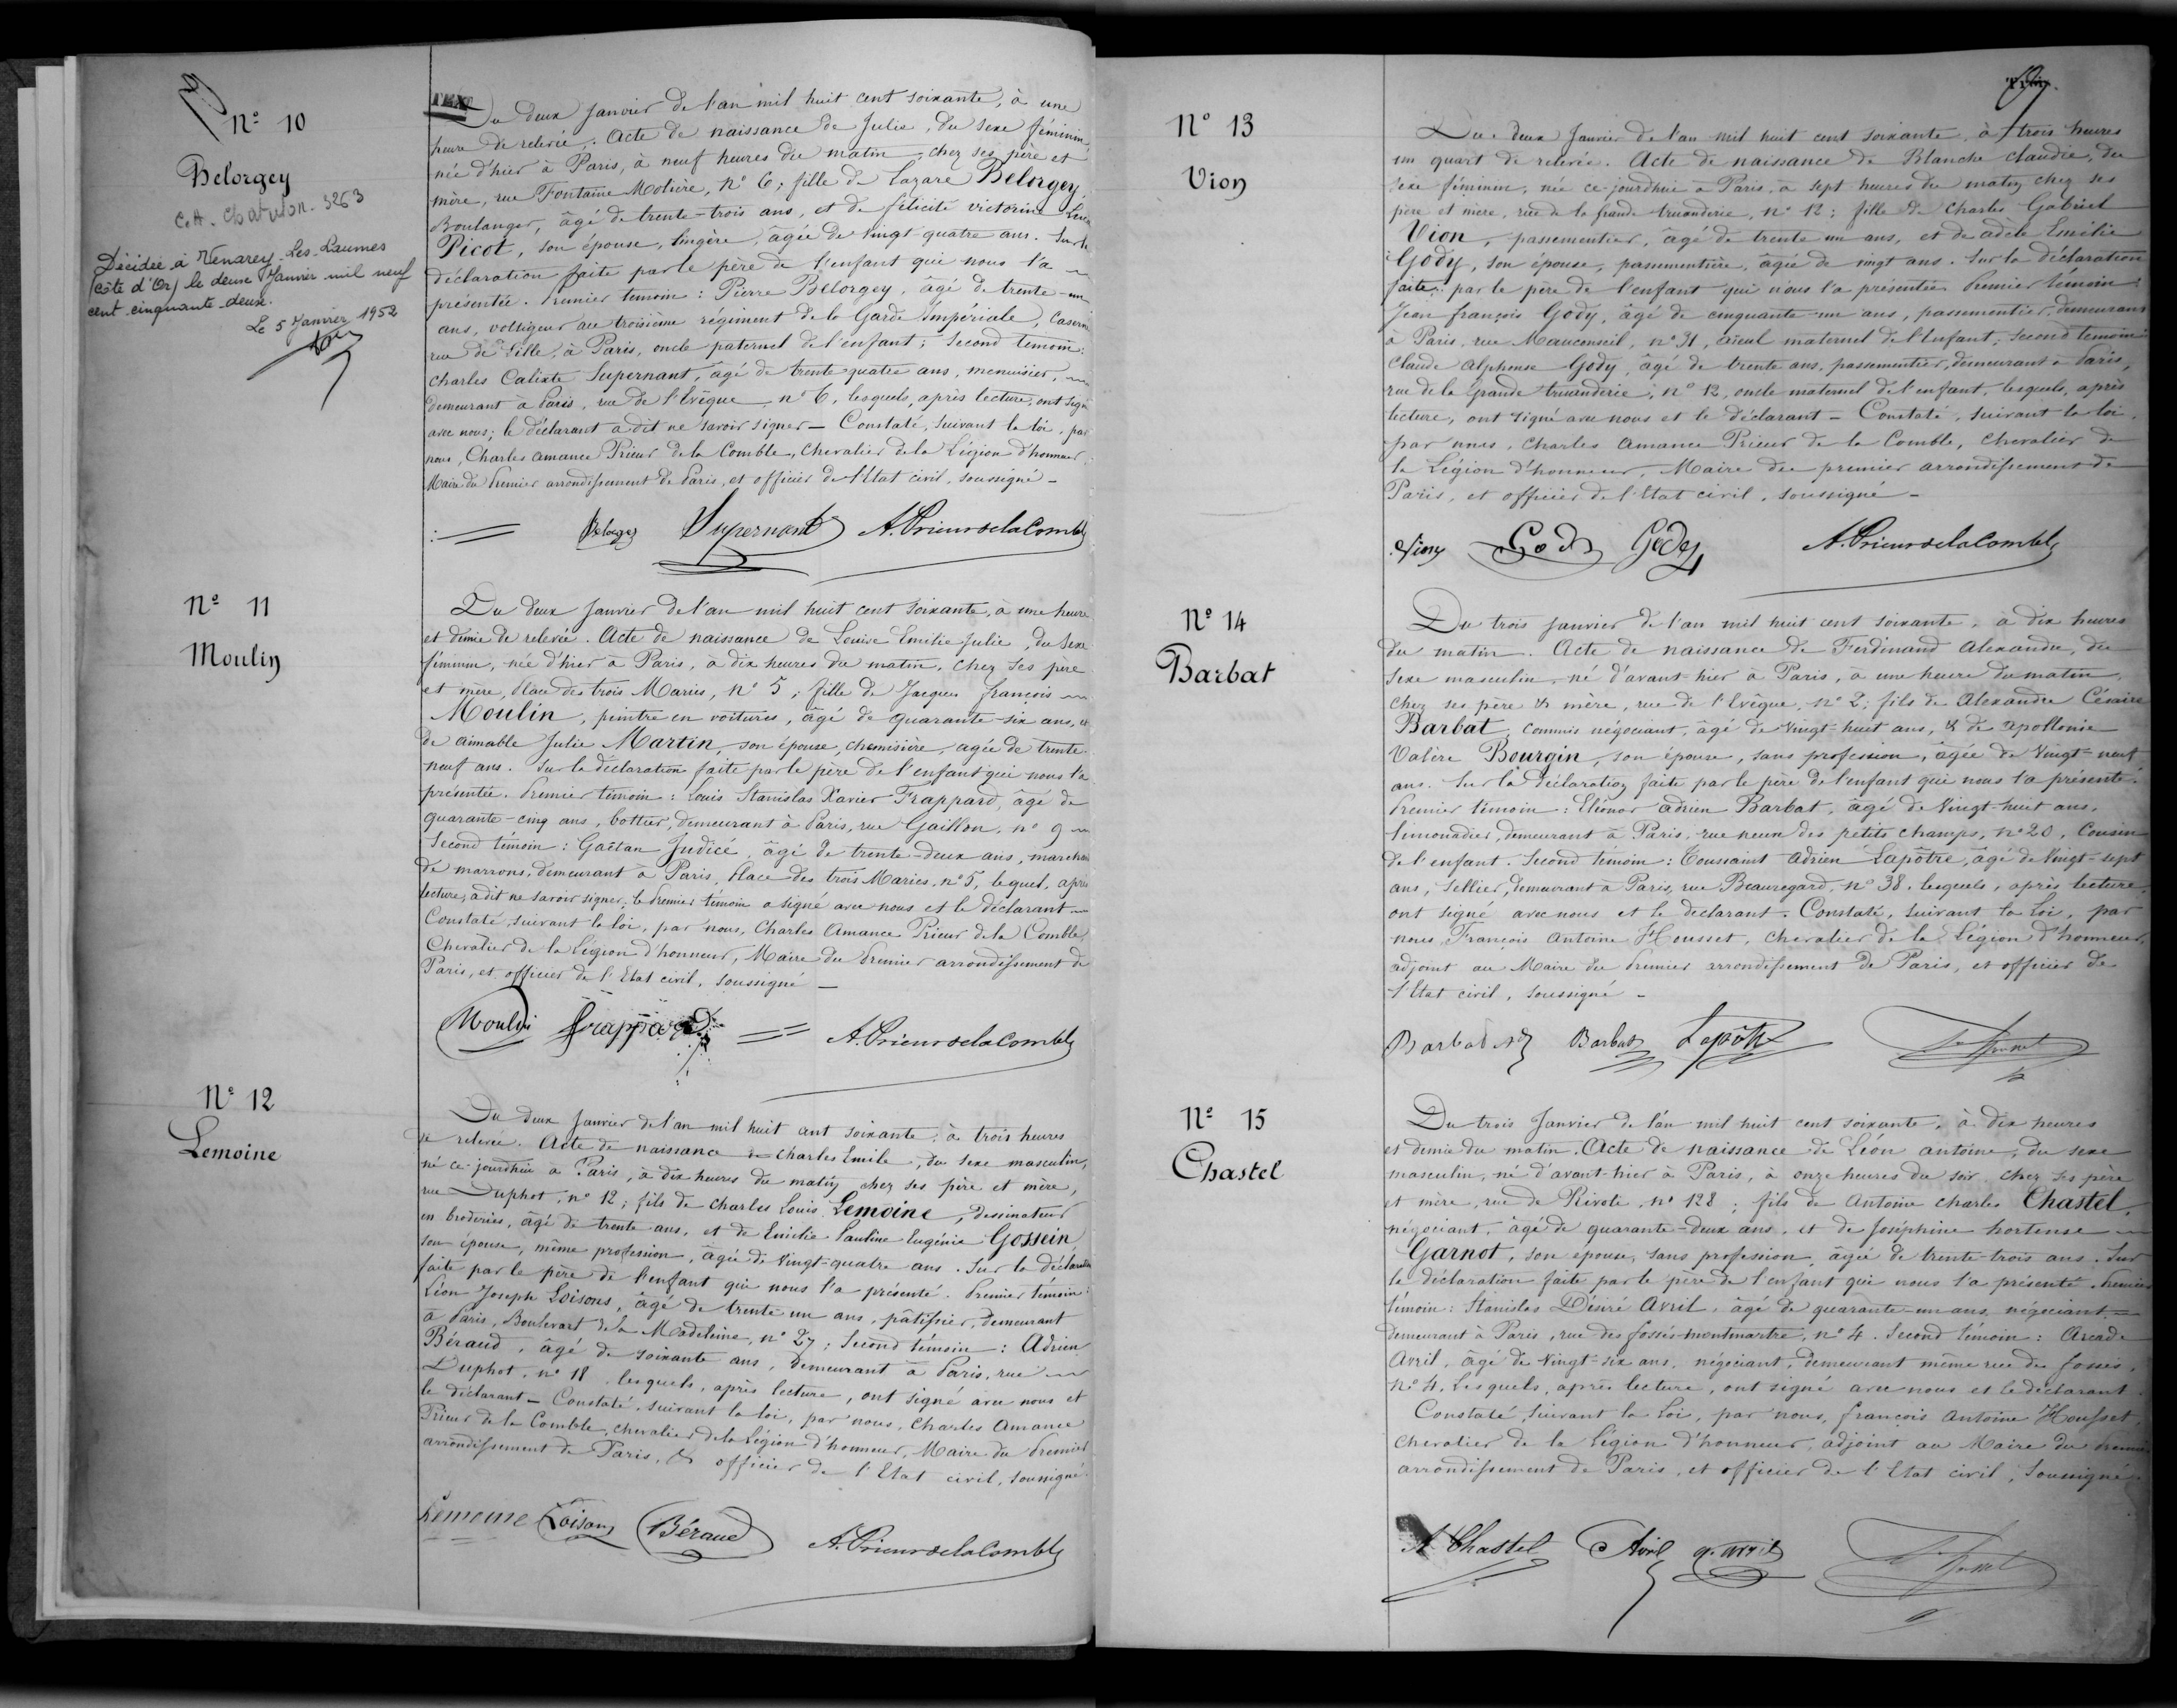 Nº 10
Belorgey
Décédée à Venarey-Les-Laumes
(côte d'Or) le deux Janvier mil neuf
cent cinquante-deux.
Le 5 Janvier 1952
Du deux Janvier de l'an mil huit cent soixante, à une
heure de relevée. Acte de naissance de Julie, du sexe féminin,
née d'hier à Paris, à neuf heures du matin, chez ses père et
mère, rue Fontaine Molière, nº 6; fille de Lazare Belorgey,
Boulanger, âgé de trente-trois ans, et de félicité victorine
Picot, son épouse, lingère, âgée de vingt-quatre ans. Sur la
déclaration faite par le père de l'enfant qui nous l'a
présentée. Premier témoin: Pierre Belorgey, âgé de trente-un
ans, voltigeur au troisième régiment de la Garde Impériale, Caserne
rue de Lille, à Paris, oncle paternel de l'enfant; Second témoin:
Charles Calixte Supernant, âgé de trente quatre ans, menuisier,
demeurant à Paris, rue de l'Evêque, nº 6, lesquels, après lecture, ont signé
avec nous; le déclarant a dit ne savoir signer - Constaté, suivant la loi, par
nous, Charles Amance Prieur de la Comble, Chevalier de la Légion d'honneur
Maire du Premier arrondissement de Paris, et officier de l'Etat civil, soussigné -
Belorgey Supernant A. Prieur de la Comble
Nº 11
Moulin
Du deux Janvier de l'an mil huit cent soixante, à une heure
et demie de relevée. Acte de naissance de Louise Emilie Julie, du sexe
féminin, née d'hier à Paris, à dix heures du matin, chez ses père
et mère, Place des trois Maries, nº 5; fille de Jacques françois
Moulin, peintre en voitures, âgé de quarante-six ans, et
de aimable Julie Martin, son épouse, chemisière, âgée de trente-
neuf ans. Sur la déclaration faite par le père de l'enfant qui nous l'a
présentée. Premier témoin: Louis Stanislas Xavier Frappard, âgé de
quarante-cinq ans, bottier, demeurant à Paris, rue Gaillon, nº 9
Second témoin: Gaëtan Judicé, âgé de trente-deux ans, marchand
de marrons, demeurant à Paris, Place des trois Maries, nº 5, lequel, après
lecture, a dit ne savoir signer; le Premier témoin a signé avec nous et le déclarant
Constaté, suivant la loi, par nous, Charles Amance Prieur de la Comble,
Chevalier de la Légion d'honneur, Maire du Premier arrondissement de
Paris, et officier de l'Etat civil, soussigné -
Moulin Frappard A. Prieur de la Comble
Nº 12
Lemoine
Du deux Janvier de l'an mil huit cent soixante, à trois heures
de relevée. Acte de naissance de Charles Emile, du sexe masculin,
né ce-jourd'hui à Paris, à dix heures du matin, chez ses père et mère,
rue Duphot, nº 12; fils de Charles Louis Lemoine, dessinateur
en broderies, âgé de trente ans, et de Emilie Pauline Eugénie Gossein,
son épouse, même profession, âgée de vingt-quatre ans. Sur la déclaration
faite par le père de l'enfant qui nous l'a présenté. Premier témoin:
Léon Joseph Loisons, âgé de trente un ans, pâtissier, demeurant
à Paris, Boulevart de la Madeleine, nº 27; Second témoin: Adrien
Béraud, âgé de soixante ans, demeurant à Paris, rue
Duphot, nº 18 lesquels, après lecture, ont signé avec nous et
le déclarant - Constaté, suivant la loi, par nous, Charles Amance
Prieur de la Comble, chevalier de la Légion d'honneur, Maire du Premier
arrondissement de Paris, & officier de l'Etat civil, soussigné
Lemoine Loisons Béraud A. Prieur de la Comble
Nº 13
Vion
Du deux Janvier de l'an mil huit cent soixante, à trois heures
un quart de relevée. Acte de naissance de Blanche Claudie, du
sexe féminin, née ce-jourd'hui à Paris, à sept heures du matin, chez ses
père et mère, rue de la grande truanderie, nº 12; fille de Charles Gabriel
Vion, passementier, âgé de trente un ans, et de adèle Emélie
Gody, son épouse, passementière, âgée de vingt ans. Sur la déclaration
faite par le père de l'enfant qui nous l'a présentée. Premier témoin:
Jean françois Gody, âgé de cinquante-un ans, passementier, demeurant
à Paris, rue Mauconseil, nº 31, aïeul maternel de l'Enfant; Second témoin
Claude Alphonse Gody, âgé de trente ans, passementier, demeurant à Paris,
rue de la Grande truanderie, nº 12, oncle maternel de l'enfant, lesquels, après
lecture, ont signé avec nous et le déclarant - Constaté, suivant la loi,
par nous, Charles Amance Prieur de la Comble, Chevalier de
la Légion d'honneur, Maire du premier arrondissement de
Paris, et officier de l'Etat civil, soussigné -
Vion Gody Gody A. Prieur de la Comble
Nº 14
Barbat
Du trois Janvier de l'an mil huit cent soixante, à dix heures
du matin. Acte de naissance de Ferdinand Alexandre, du
sexe masculin, né d'avant-hier à Paris, à une heure du matin,
chez ses père & mère, rue de l'Evêque, nº 2; fils de Alexandre Césaire
Barbat, commis négociant, âgé de vingt-huit ans, & de Apollonie
Valère Bourgin, son épouse, sans profession, âgée de Vingt-neuf
ans. Sur la déclaration faite par le père de l'enfant qui nous l'a présenté.
Premier témoin: Eléonor Adrien Barbat, âgé de Vingt-huit ans,
limonadier, demeurant à Paris, rue neuve des petits Champs, nº 20, Cousin
de l'enfant. Second témoin: Toussaint Adrien Lapôtre, âgé de Vingt-sept
ans, Sellier, demeurant à Paris, rue Beauregard, nº 38, lesquels, après lecture,
ont signé avec nous et le déclarant. Constaté, suivant la Loi, par
nous, François Antoine Housset, chevalier de la Légion d'honneur,
adjoint au Maire du Premier arrondissement de Paris, et officier de
l'Etat civil, soussigné -
Barbat Barbat Lapôtre
Nº 15
Chastel
Du trois Janvier de l'an mil huit cent soixante, à dix heures
et demie du matin. Acte de naissance de Léon Antoine, du sexe
masculin, né d'avant-hier à Paris, à onze heures du soir, chez ses père
et mère, rue de Rivoli, nº 128; fils de Antoine Charles Chastel,
négociant, âgé de quarante-deux ans, et de Joséphine hortense
Garnot, son épouse, sans profession, âgée de trente-trois ans. Sur
la déclaration faite par le père de l'enfant qui nous l'a présenté. Premier
témoin: Stanislas Désiré Avril, âgé de quarante-un ans, négociant
demeurant à Paris, rue des fossés montmartre, nº 4. Second témoin: Arcade
Avril, âgé de Vingt-six ans, négociant, demeurant même rue des fossés,
nº 4, Lesquels, après lecture, ont signé avec nous et le déclarant.
Constaté, suivant la Loi, par nous, françois Antoine Housset,
Chevalier de la Légion d'honneur, adjoint au Maire du Premier
arrondissement de Paris, et officier de l'Etat civil, soussigné.
A Chastel Avril a. avril